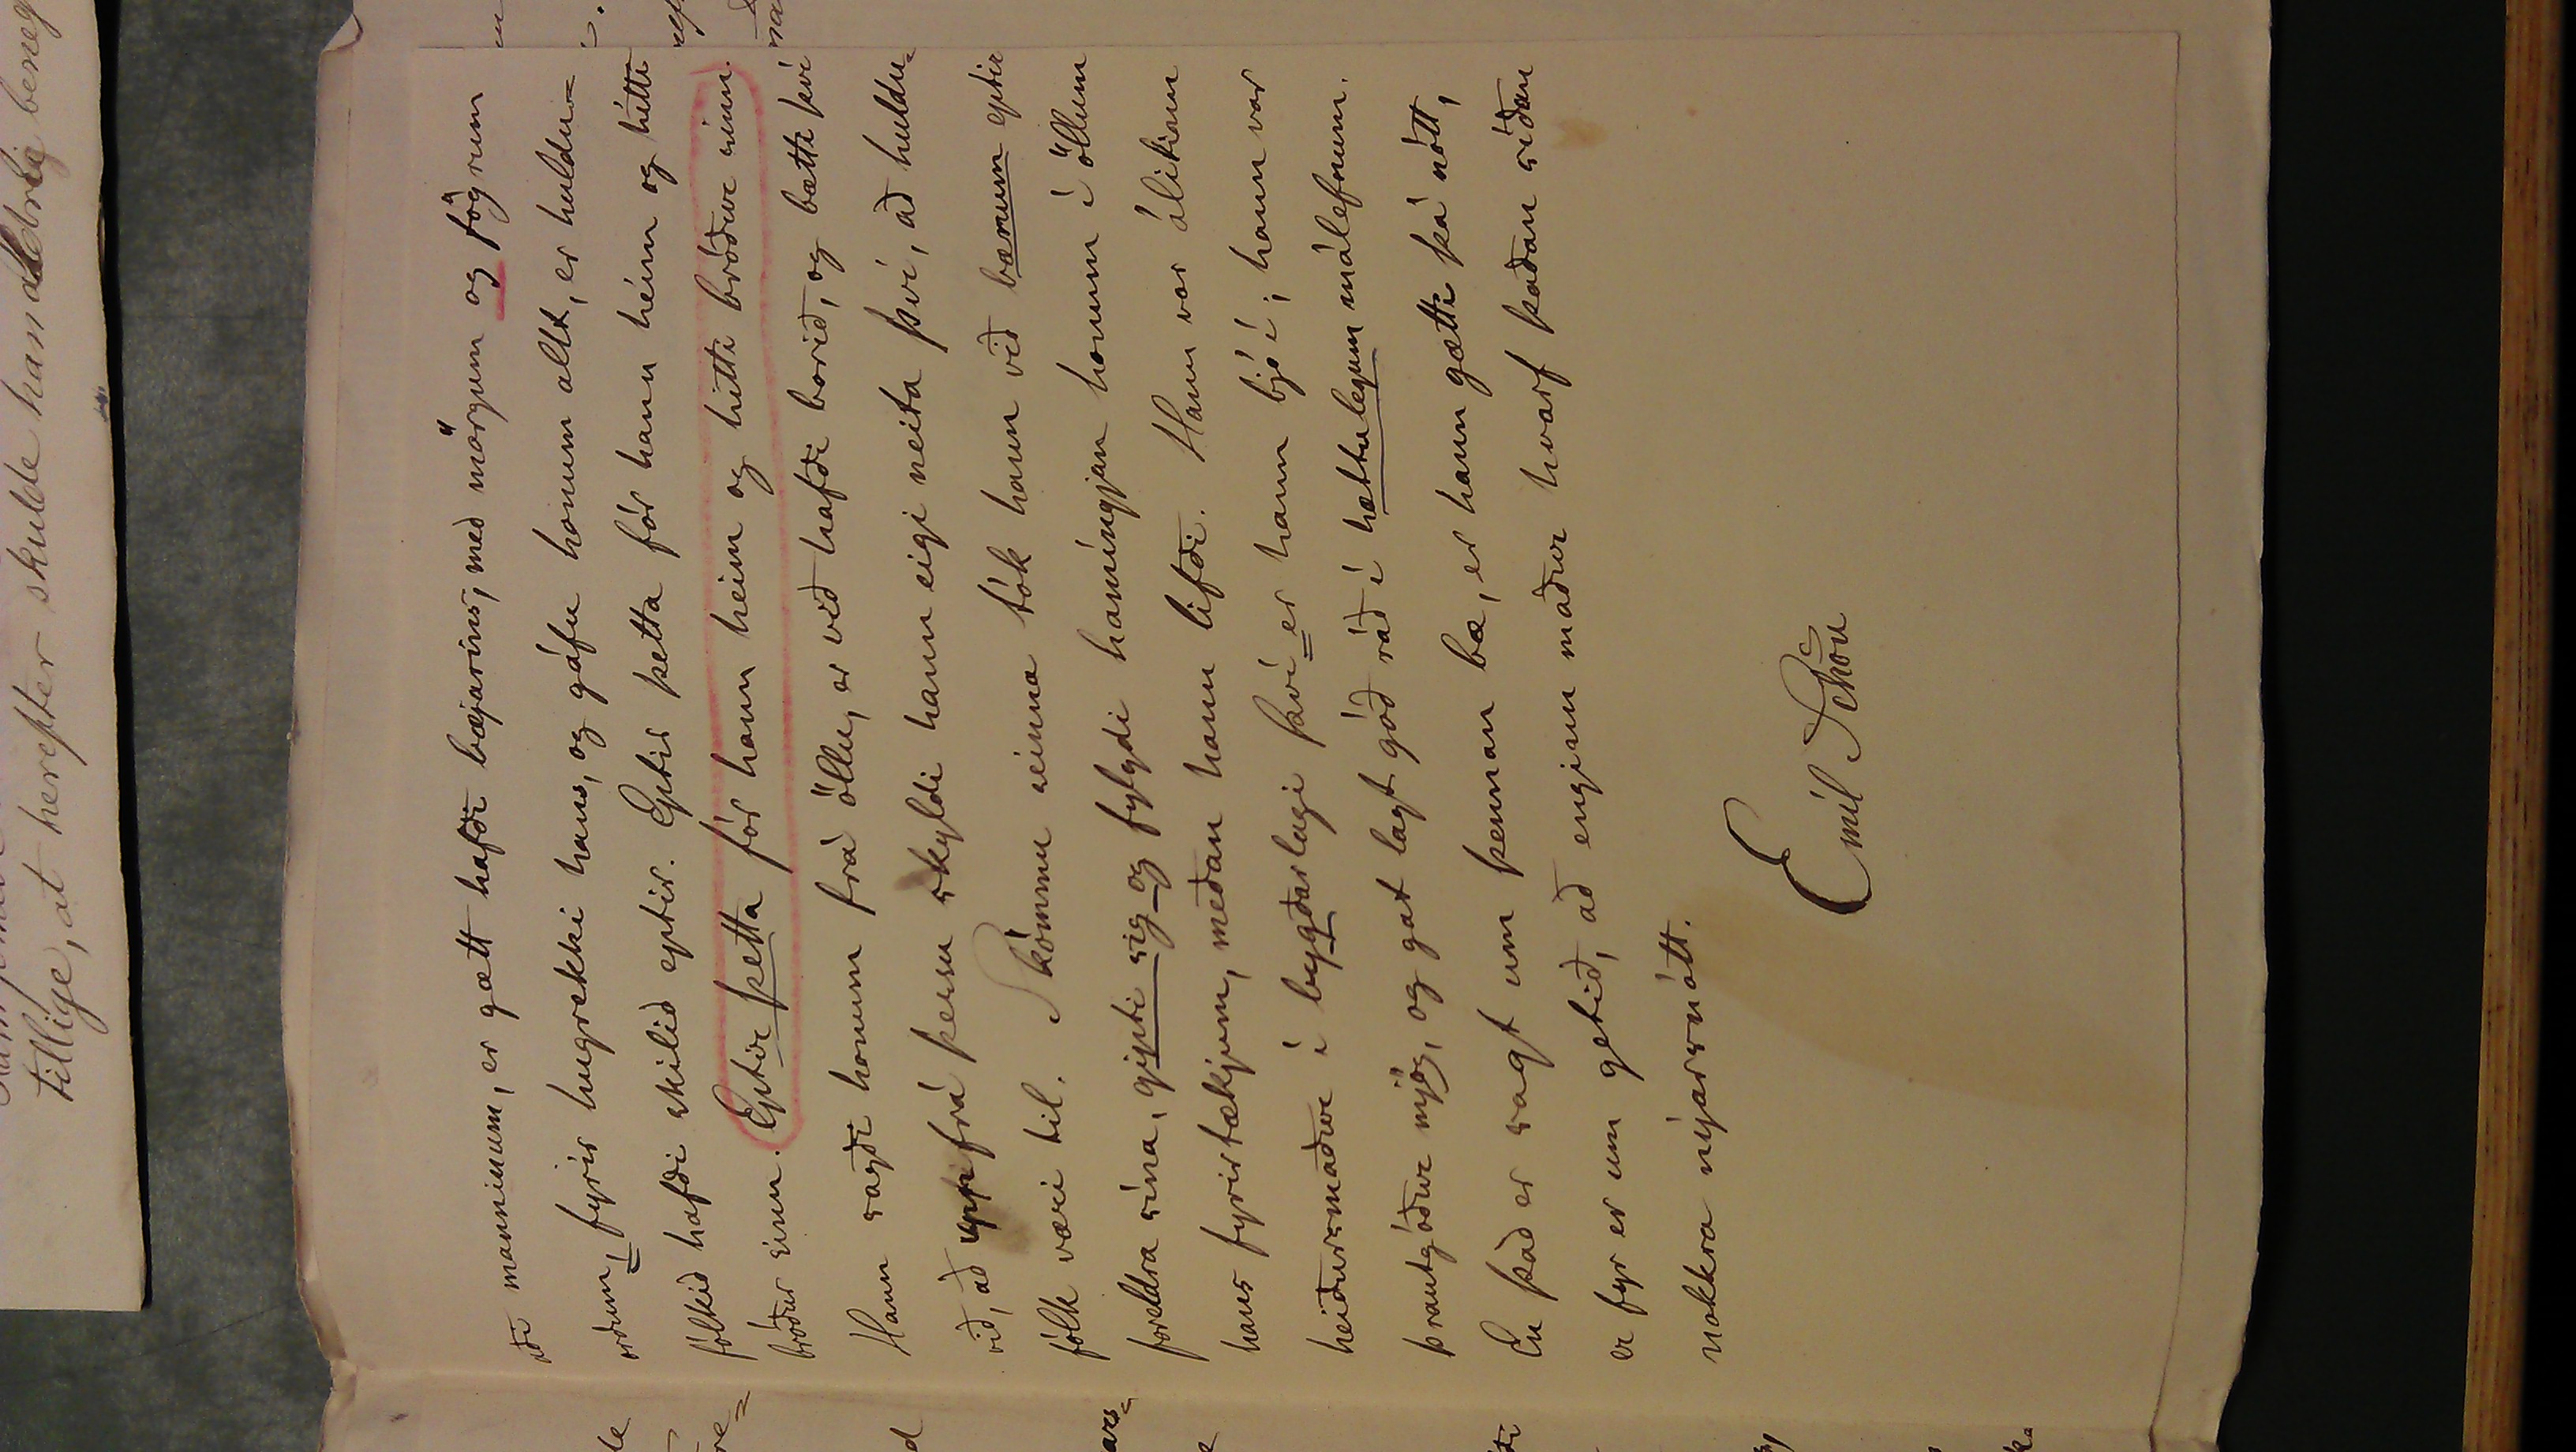 aldrig beneg
skulde han
tillige, at herefter
aði manninum, er gætt hafði bæjarins, með mörgum og fögrum
orðum, fyrir hugrekki hans, og gáfu honum allt, er huldu=
fólkið hafði skilið eptir. Eptir þetta fór hann heim og hitti
bróður sinn. Eptir þetta fór hann heim og hitti bróður sinn.
Hann sagði honum frá öllu, er við hafði borið, og bætti því
við, að upp frá þessu skyldi hann eigi neita því, að huldu=
fólk væri til. Skömmu seinna tók hann við bænum eptir
foreldra sína, gipti sig og fylgdi hamíngjan honum í öllum
hans fyrirtækjum, meðan hann lifði. Hann var álitinn
heiðursmaður í bygðarlagi því er hann bjó í; hann var
þrautgóður mjög, og gat lagt góð ráð í hættulegum málefnum.
En það er sagt um þennan bæ, er hann gætti þá nótt,
er fyr er um getið, að enginn maður hvarf þaðan síðan
nokkra nýjarsnótt.
Emil Schou